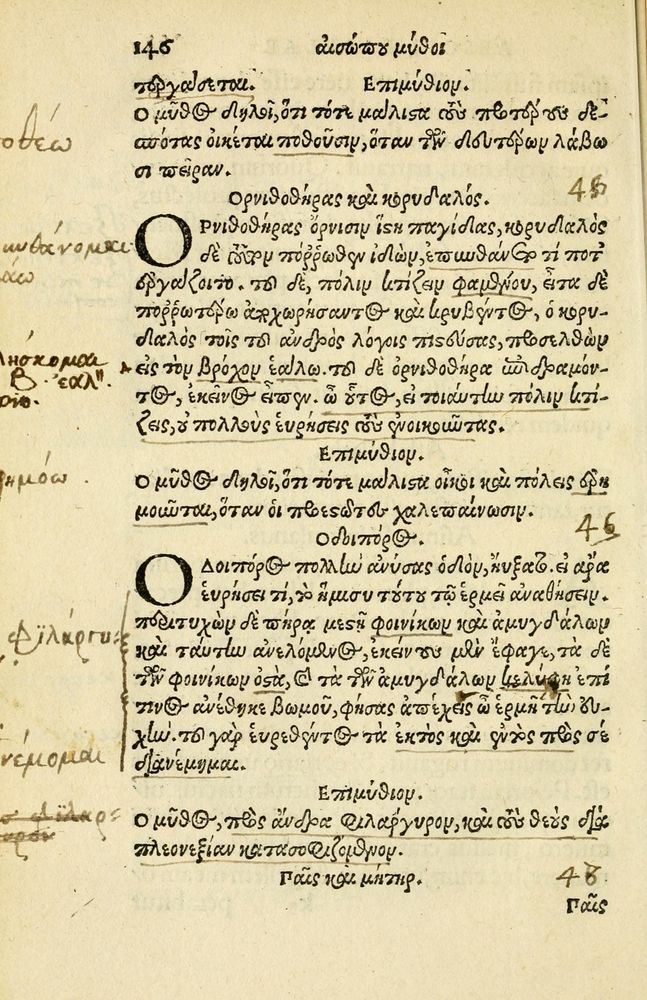 146 αισώπου μύθοι
τεργάσεται. Επιμύθιον.
Ο μῦθος δηλοῖ, ὅτι τότε μάλιστα τοὺς προτέρους δε-
σπότας οἰκέται ποθοῦσιν, ὅταν τῶν δευτέρων λάβω
σι πεῖραν.
Ορνιθοθήρας καὶ κορυδαλός. 45
ΟΡνιθοθήρας ὄρνισιν ἵστη παγίδας, κορυδαλὸς
δὲ τοῦτον πόῤῥωθεν ἰδὼν, ἐπυνθάνετο τί ποτ᾽
ἐργάζοιτο. τοῦ δὲ, πόλιν κτίζειν φαμένου, εἶτα δὲ
ποῤῥωτέρω ἀποχωρήσαντος καὶ κρυβέντος, ὁ κορυ-
δαλὸς τοῖς τοῦ ἀνδρὸς λόγοις πιστεύσας, προσελθὼν
εἰς τὸν βρόχον ἑάλω. τοῦ δὲ ὀρνιθοθήρα ἐπιδραμόν-
τος, ἐκεῖνος εἶπεν. ὦ οὗτος, εἰ τοιαύτην πόλιν κτί-
ζεις, οὐ πολλοὺς εὑρήσεις τοὺς ἐνοικοῦντας.
Επιμύθιον.
Ο μῦθος δηλοῖ, ὅτι τότε μάλιστα οἶκοι καὶ πόλεις ἐρη
μοῦνται, ὅταν οἱ προεστῶτες χαλεπαίνωσιν.
Οδοιπόρος. 46
ΟΔοιπόρος πολλὴν ἀνύσας ὁδὸν, ηὔξατο. εἰ ἄρα
εὑρήσει τί, τὸ ἥμισυ τούτου τῷ ἑρμεῖ ἀναθήσειν.
περιτυχὼν δὲ πήρᾳ μεστῇ φοινίκων καὶ ἀμυγδάλων
καὶ ταύτην ἀνελόμενος, ἐκείνους μὲν ἔφαγε, τὰ δὲ
τῶν φοινίκων ὀστᾶ, καὶ τὰ τῶν ἀμυγδάλων κελύφη ἐπί
τινος ἀνέθηκε βωμοῦ, φήσας ἀπέχεις ὦ ἑρμῆ τὴν εὐ-
χήν. τοῦ γὰρ εὑρεθέντος τὰ ἐκτὸς καὶ ἐντὸς πρὸς σὲ
διανέμημαι.
Επιμύθιον.
Ο μῦθος, πρὸς ἄνδρα φιλάργυρον, καὶ τοὺς θεοὺς διὰ
πλεονεξίαν κατασοφιζόμενον.
Παῖς καὶ μήτηρ.
Παῖς
οθέω
πυνθάνομαι
ημόω.
φιλάργυ
νέμομαι